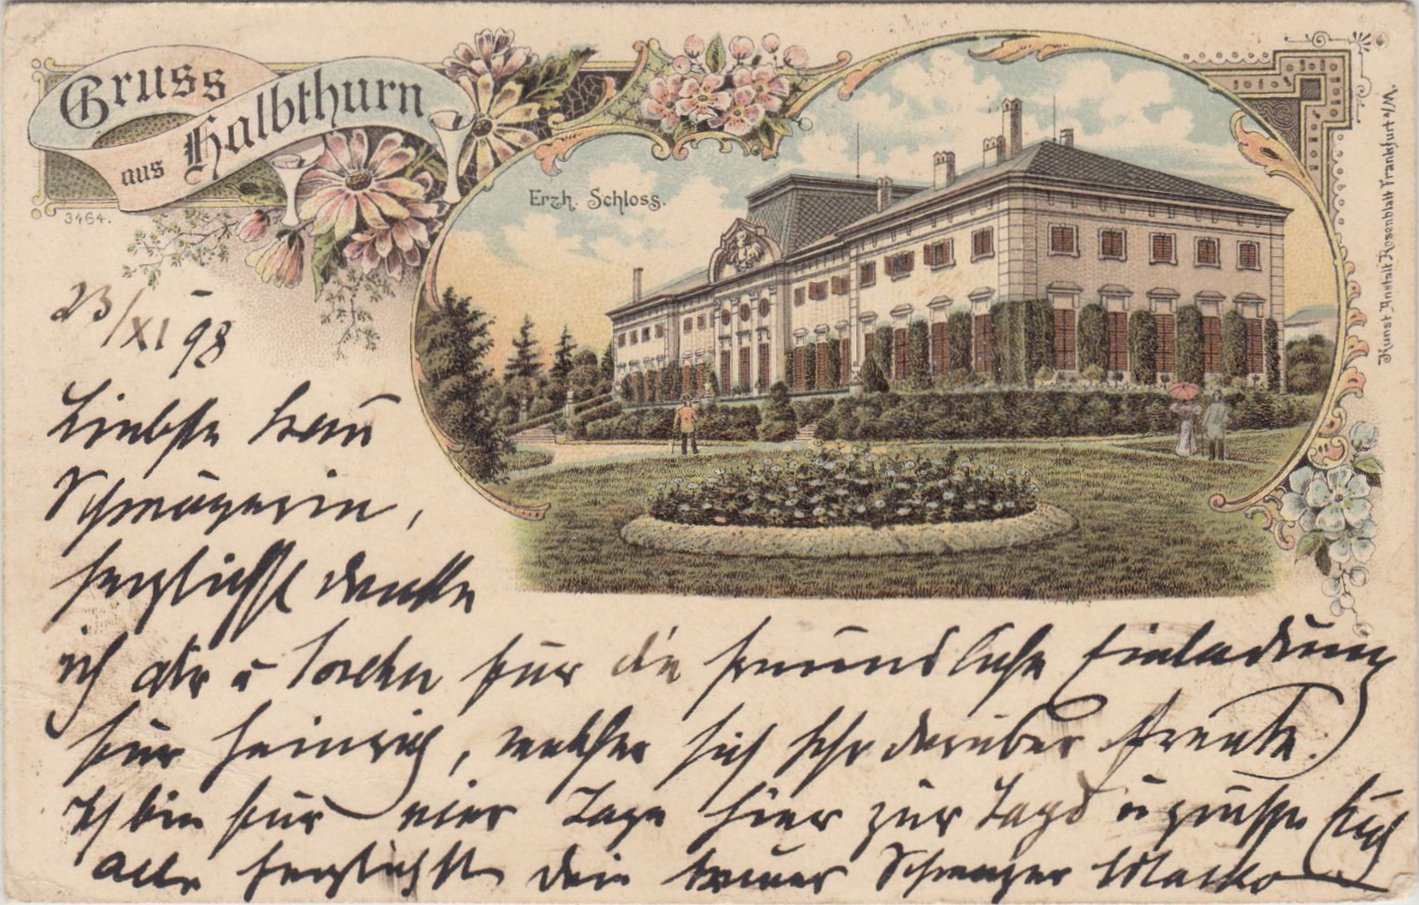 Gruss
aus Halbthurn
3464.
Erzh. Schloss.
Kunst Anstalt Rosenblatt Frankfurt a/M.
23/XI 98
Liebste Frau
Schwägerin,
herzlichst danke
ich dir u für die freundliche Einladung
für Heinrich, welcher sich sehr darüber freute.
Ich bin für vier Tage hier zur Jagd u grüsse Euch
alle herzlichst dein treuer Schwager